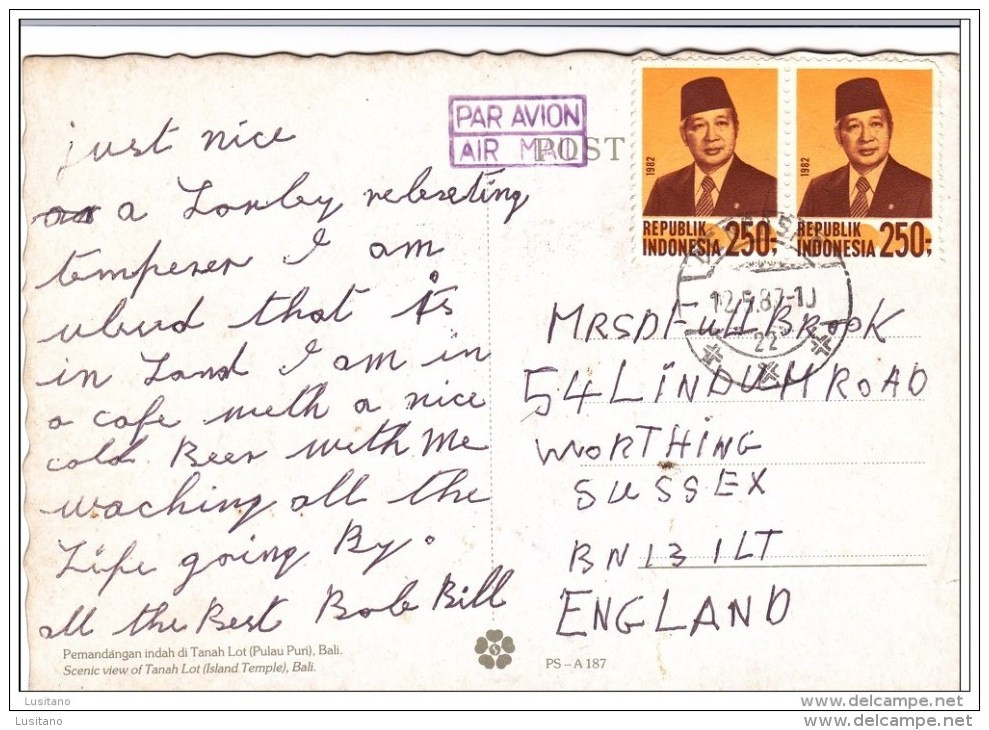 just nice
a Lovley relaxeting
temperer I am
ubud that is
in Land I am in
a cafe with a nice
cold Beer with me
waching all the
Life going By.
all the Best Bob Bill
Pemandangan indah di Tanah Lot (Pulau Puri), Bali.
Scenic view of Tanah Lot (Island Temple), Bali.
PAR AVION
AIR MAIL
POST
1982
REPUBLIK
INDONESIA 250;-
1982
REPUBLIK
INDONESIA 250;-
12.5.87-10
22
MRS D FULLBROOK
54 LINDUM ROAD
WORTHING
SUSSEX
BN13 1LT
ENGLAND
PS – A 187
Lusitano
www.delcampe.net
Lusitano
www.delcampe.net